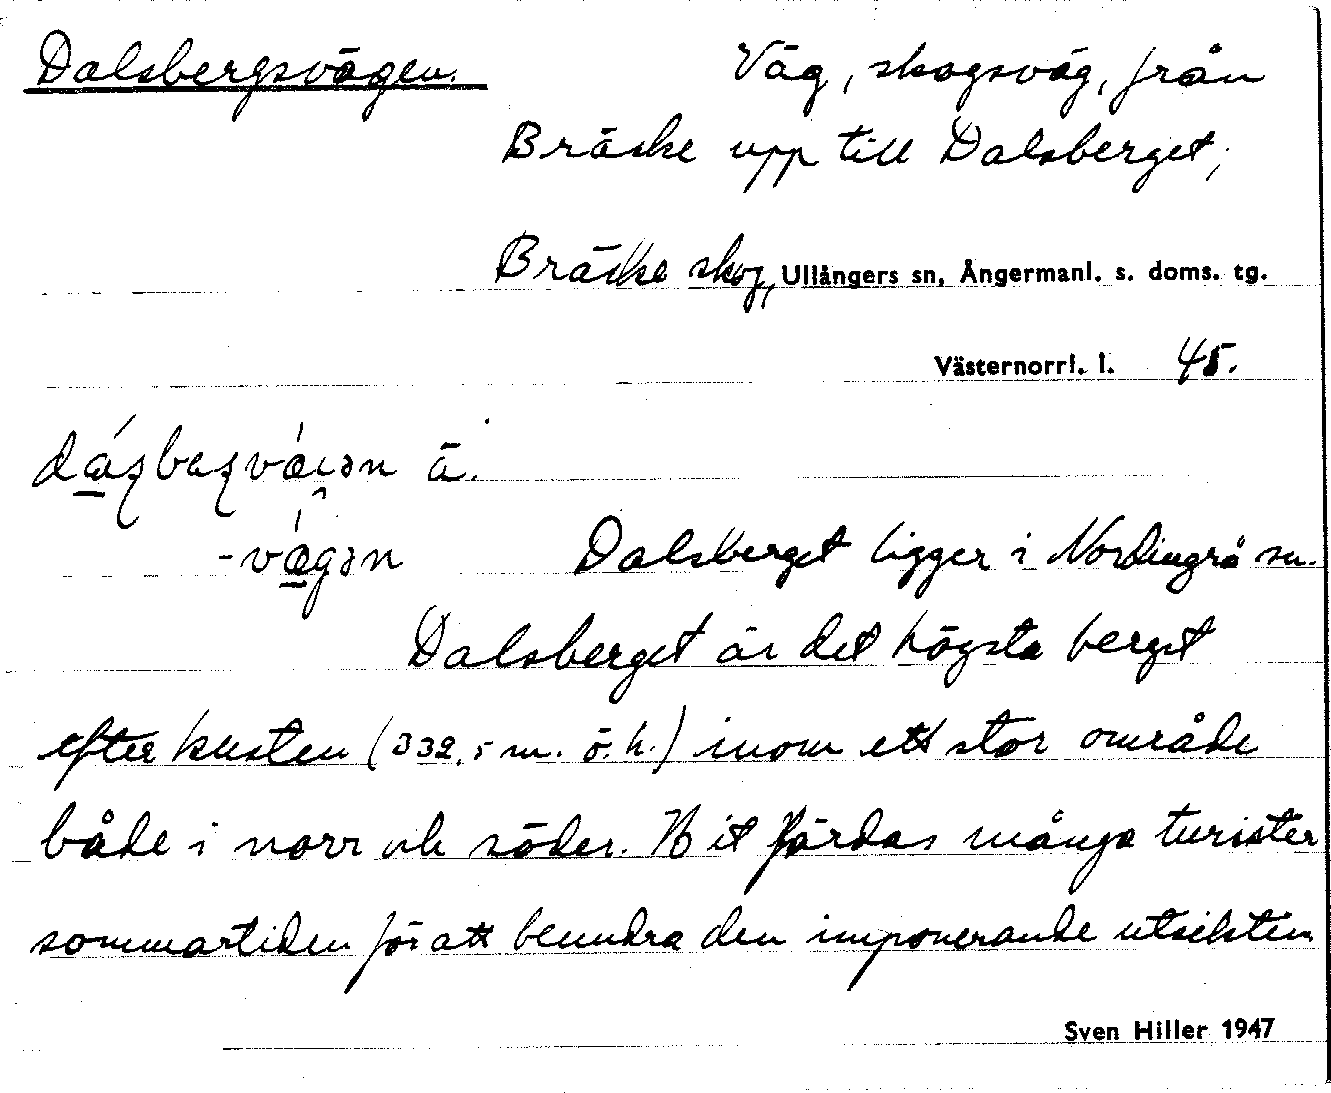 Dalsbergsvägen. Väg, skogsväg, från
Bräcke upp till Dalsberget;
Bräcke skog, Ullångers sn, Ångermanl. s. doms. tg.
Västernorrl. l. 45.
ä.
Dalsberget ligger i Nordingrå sn.
Dalsberget är det högsta berget
efter kusten (332,5 m. ö. h.) inom ett stor område
både i norr och söder. Hit färdas många turister
sommartiden för att beundra den imponerande utsikten
Sven Hiller 1947